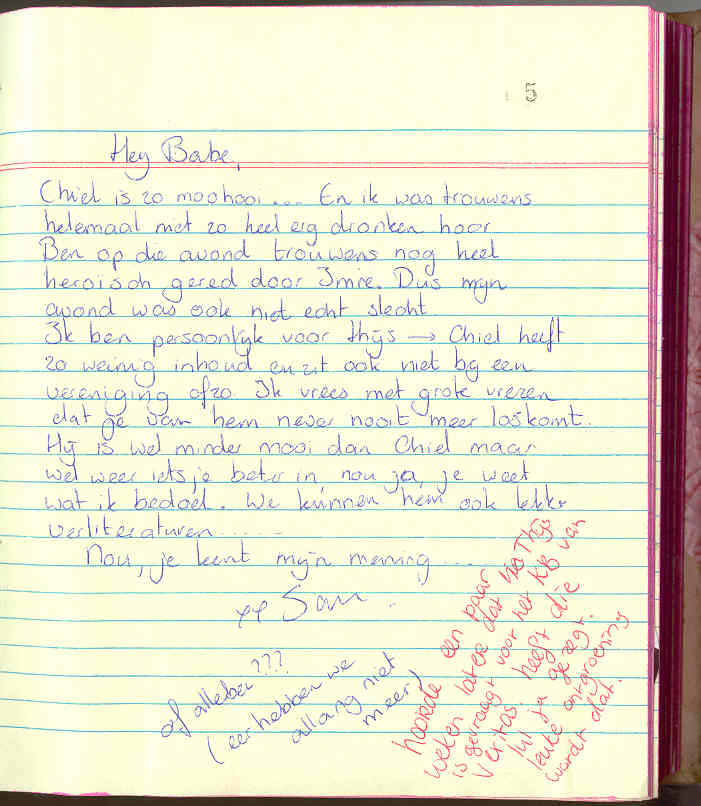 5
Hey Babe,
Chiel is zo moohooi.... En ik was trouwens
helemaal niet zo heel erg dronken hoor
Ben op die avond trouwens nog heel
heroïsch gered door Imre. Dus mijn
avond was ook niet echt slecht
Ik ben persoonlijk voor Thijs → Chiel heeft
zo weinig inhoud en zit ook niet bij een
vereniging ofzo. Ik vrees met grote vrezen
dat je van hem never nooit meer loskomt.
Hij is wel minder mooi dan Chiel maar
wel weer ietsje beter in, nou ja, je weet
wat ik bedoel. We kunnen hem ook lekker
verliteraturen......
Nou, je kent mijn mening....
xx San.
of allebei ???
(eer hebben we
allang niet
meer)
hoorde een paar
weken later dat Thijs
is gevraagd voor het KB van
Veritas. heeft die
lul ja gezegt.
leuke ontgroening
wordt dat.